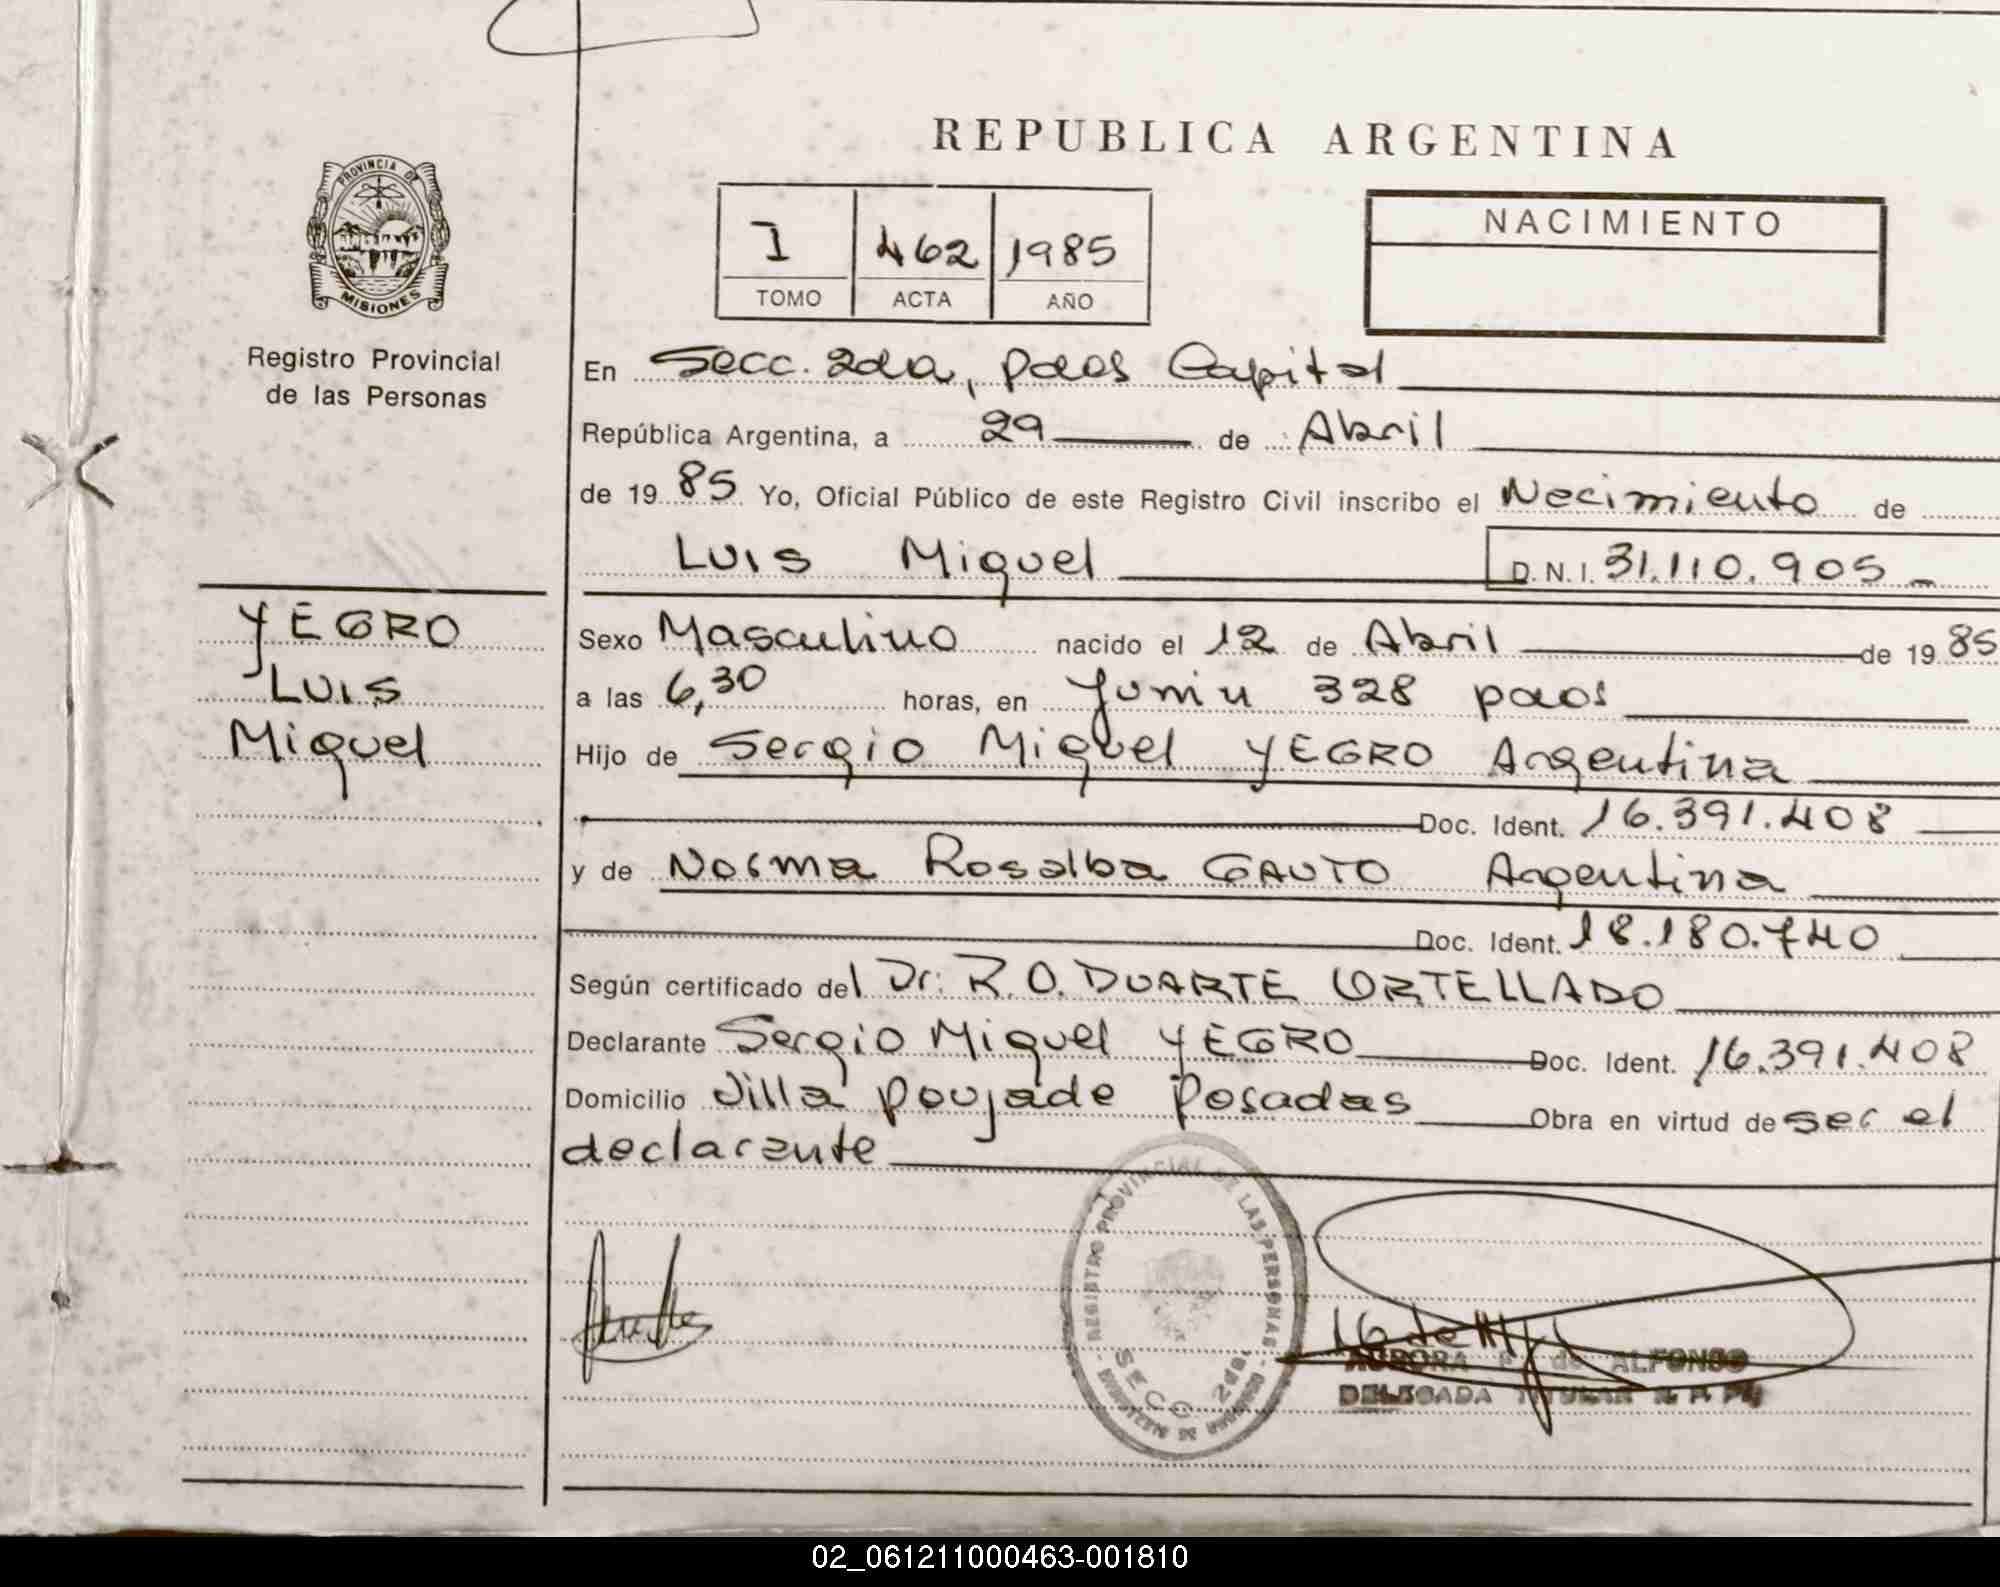 REPUBLICA ARGENTINA
PROVINCIA DE
MISIONES
Registro Provincial
de las Personas
I 462 1985
TOMO ACTA AÑO
NACIMIENTO
En Secc. 2da, pdas Capital
República Argentina, a 29 de Abril
de 1985 Yo, Oficial Público de este Registro Civil inscribo el Nacimiento de
LUIS Miguel D.N.I. 31.110.905
YEGRO
LUIS
Miguel
Sexo Masculino nacido el 12 de Abril de 1985
a las 6,30 horas, en Junin 328 pdas
Hijo de Sergio Miguel YEGRO Argentina
Doc. Ident. 16.391.408
y de Norma Rosalba GAUTO Argentina
Doc. Ident. 18.180.740
Según certificado del Dr: R.O. DUARTE ORTELLADO
Declarante Sergio Miguel YEGRO Doc. Ident. 16.391.408
Domicilio Villa Poujade Posadas Obra en virtud de ser el
declarante
REGISTRO PROVINCIAL DE LAS PERSONAS
SECC. 2da.
AURORA de ALFONSO
DELEGADA TITULAR
02_061211000463-001810